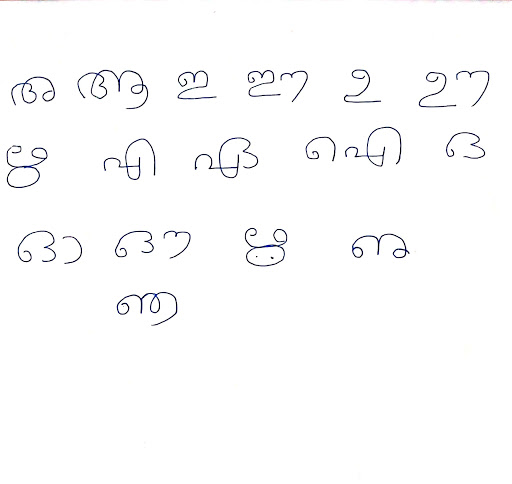 അ ആ ഇ ഈ ഉ ഊ
ഋ എ ഏ ഐ ഒ
ഓ ഔ ഋ ണ
ഞ